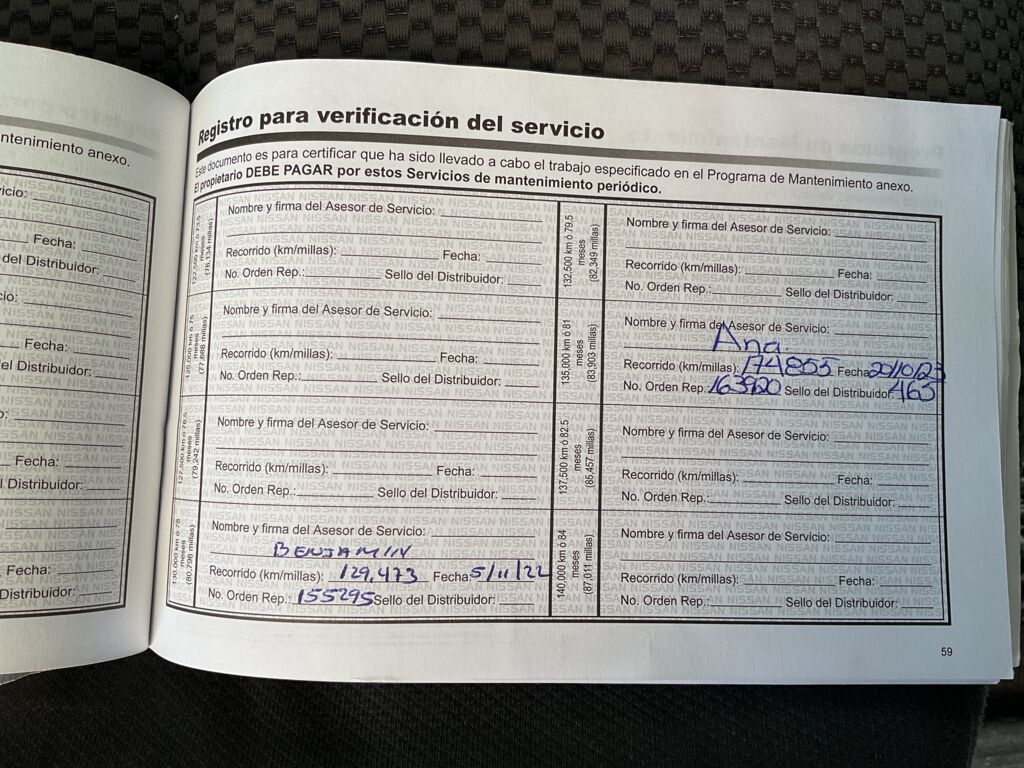 ntenimiento anexo.
icio:
Fecha:
del Distribuidor:
cio:
Fecha:
el Distribuidor:
o:
Fecha:
Distribuidor:
Fecha:
Distribuidor:
Registro para verificación del servicio
Este documento es para certificar que ha sido llevado a cabo el trabajo especificado en el Programa de Mantenimiento anexo.
El propietario DEBE PAGAR por estos Servicios de mantenimiento periódico.
122,500 km ó 73.5 meses (76,134 millas)
Nombre y firma del Asesor de Servicio:
Recorrido (km/millas): Fecha:
No. Orden Rep.: Sello del Distribuidor:
125,000 km ó 75 meses (77,688 millas)
Nombre y firma del Asesor de Servicio:
Recorrido (km/millas): Fecha:
No. Orden Rep.: Sello del Distribuidor:
127,500 km ó 76.5 meses (79,242 millas)
Nombre y firma del Asesor de Servicio:
Recorrido (km/millas): Fecha:
No. Orden Rep.: Sello del Distribuidor:
130,000 km ó 78 meses (80,796 millas)
Nombre y firma del Asesor de Servicio:
BENJAMIN
Recorrido (km/millas): 129,473 Fecha: 5/11/22
No. Orden Rep.: 155295 Sello del Distribuidor:
132,500 km ó 79.5 meses (82,349 millas)
Nombre y firma del Asesor de Servicio:
Recorrido (km/millas): Fecha:
No. Orden Rep.: Sello del Distribuidor:
135,000 km ó 81 meses (83,903 millas)
Nombre y firma del Asesor de Servicio:
Ana.
Recorrido (km/millas): 174855 Fecha: 20/10/23
No. Orden Rep.: 163920 Sello del Distribuidor: 465
137,500 km ó 82.5 meses (85,457 millas)
Nombre y firma del Asesor de Servicio:
Recorrido (km/millas): Fecha:
No. Orden Rep.: Sello del Distribuidor:
140,000 km ó 84 meses (87,011 millas)
Nombre y firma del Asesor de Servicio:
Recorrido (km/millas): Fecha:
No. Orden Rep.: Sello del Distribuidor:
59